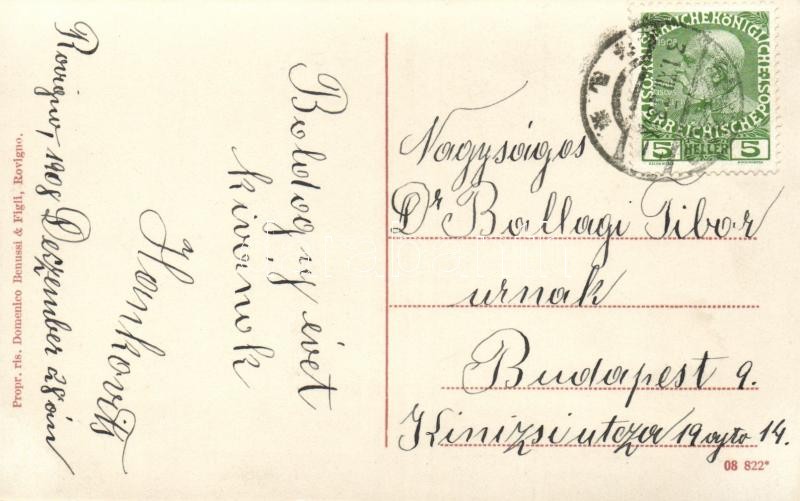 Rovigno, 1908 Dezember 28án
Boldog uj évet
kivánok
Hankovits
Nagyságos
Dr Ballagi Tibor
urnak
Budapest 9.
Kinizsi utcza 19 ajto 14.
Propr. ris. Domenico Benussi & Figli, Rovigno.
08 822*
1908
5 HELLER 5